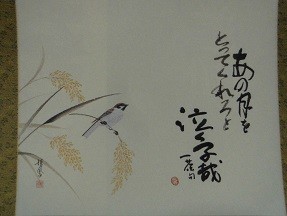 あの月を
とってくれろと
泣く子哉
一茶